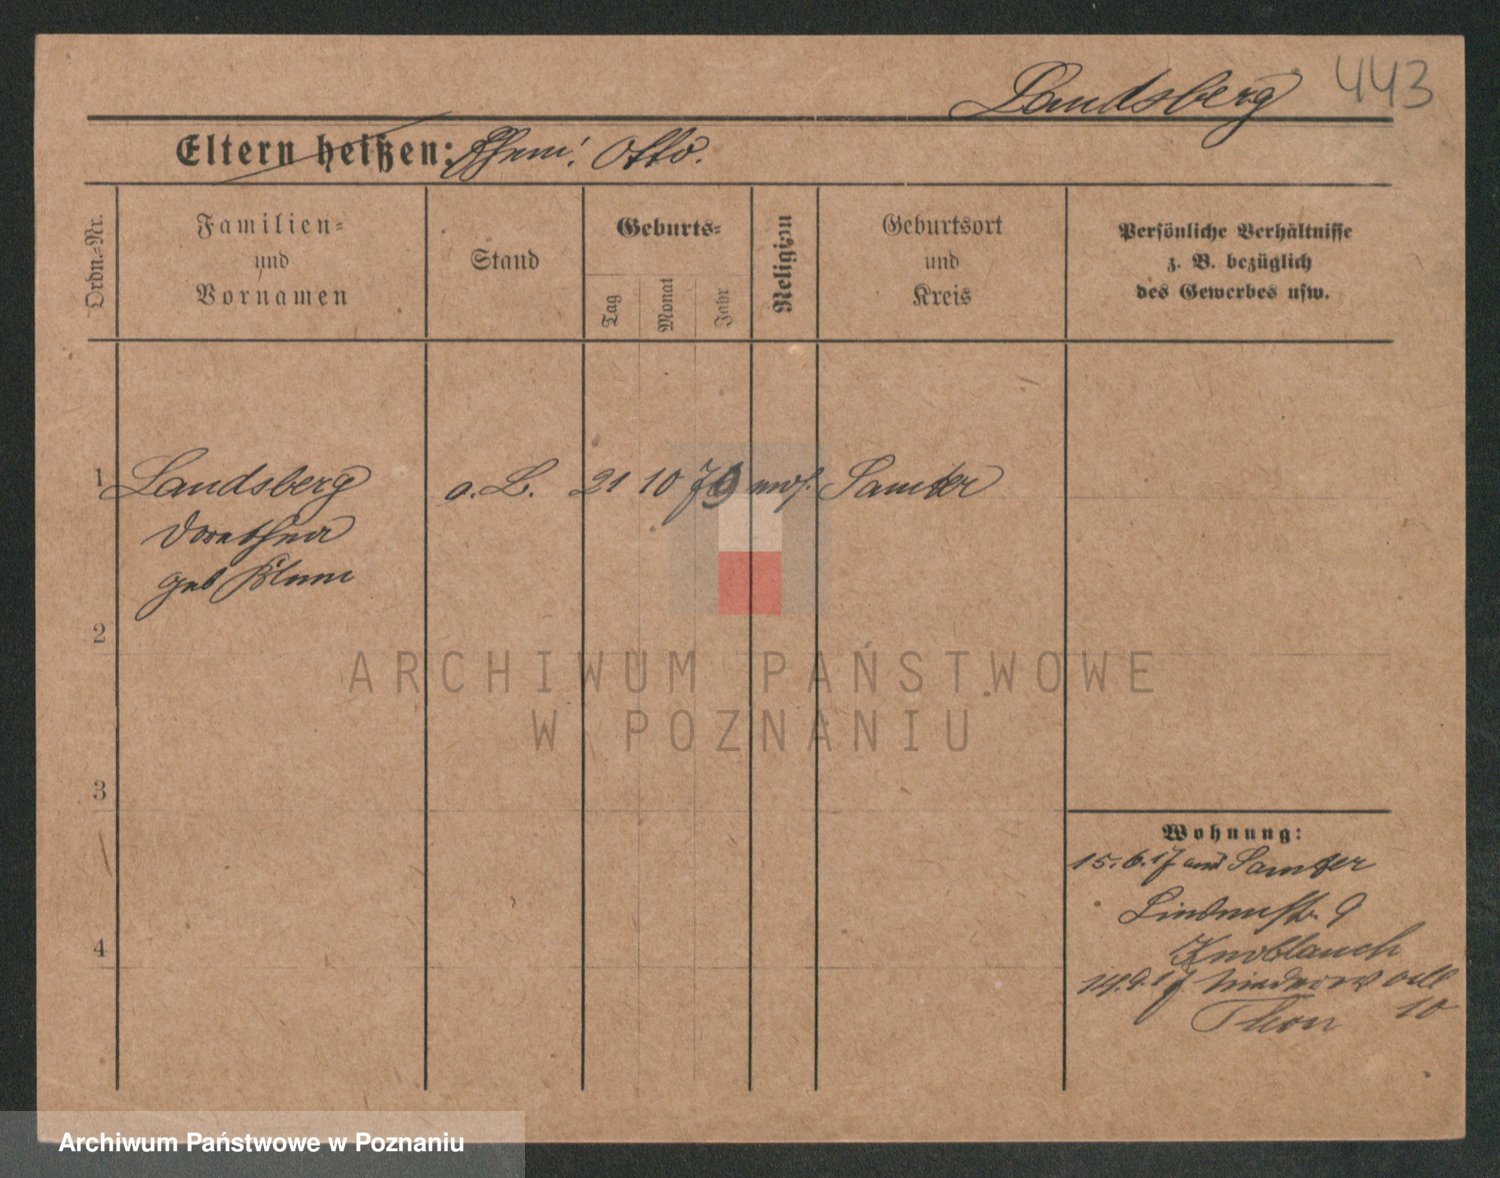 Landsberg 443
Eltern heißen: Ehem: Otto.
Ordn.-Nr.
Familien-
und
Vornamen
Stand
Geburts-
Tag
Monat
Jahr
Religion
Geburtsort
und
Kreis
Persönliche Verhältnisse
z. B. bezüglich
des Gewerbes usw.
1 Landsberg a. L. 21 10 79 mos. Samter
Dorothea
geb Blum
2
3
4
Wohnung:
15.6.17 aus Samter
Lindenstr. 9
Knoblauch
14.9.17 Niederwall
10
Thon
ARCHIWUM PAŃSTWOWE
W POZNANIU
Archiwum Państwowe w Poznaniu